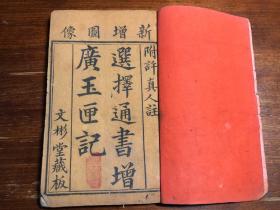 新增圖像
附許真人註
選擇通書增
廣玉匣記
文彬堂藏板